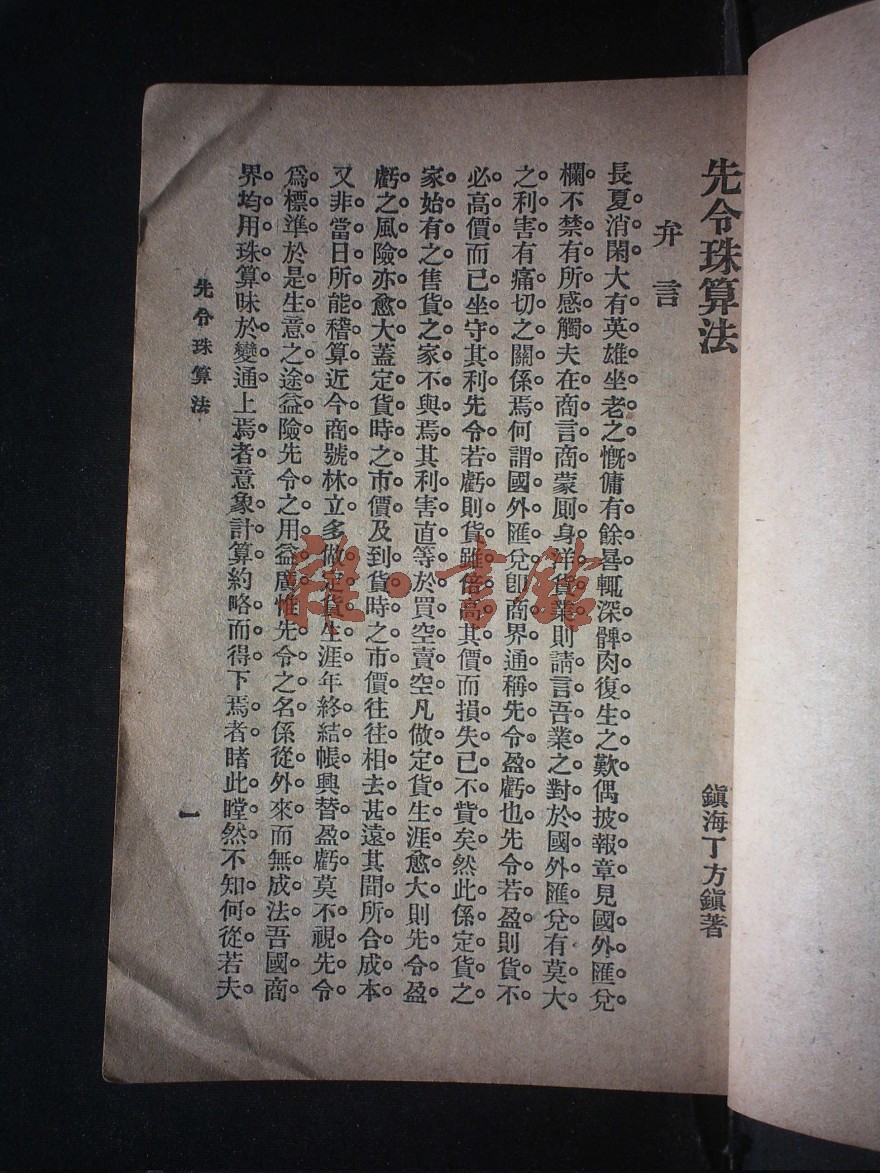 先令珠算法
鎮海丁方鎮著
弁言
長夏消閑大有英雄坐老之慨傭有餘晷輒深髀肉復生之歎偶披報章見國外匯兌
欄不禁有所感觸夫在商言商蒙厠身洋貨業則請言吾業之對於國外匯兌有莫大
之利害有痛切之關係焉何謂國外匯兌卽商界通稱先令盈虧也先令若盈則貨不
必高價而已坐守其利先令若虧則貨雖倍高其價而損失已不貲矣然此係定貨之
家始有之售貨之家不與焉其利害直等於買空賣空凡做定貨生涯愈大則先令盈
虧之風險亦愈大蓋定貨時之市價及到貨時之市價往往相去甚遠其間所合成本
又非當日所能稽算近今商號林立多做定貨生涯年終結帳興替盈虧莫不視先令
爲標準於是生意之途益險先令之用益廣惟先令之名係從外來而無成法吾國商
界均用珠算昧於變通上焉者意象計算約略而得下焉者睹此瞠然不知何從若夫
先令珠算法
一
雜·書館